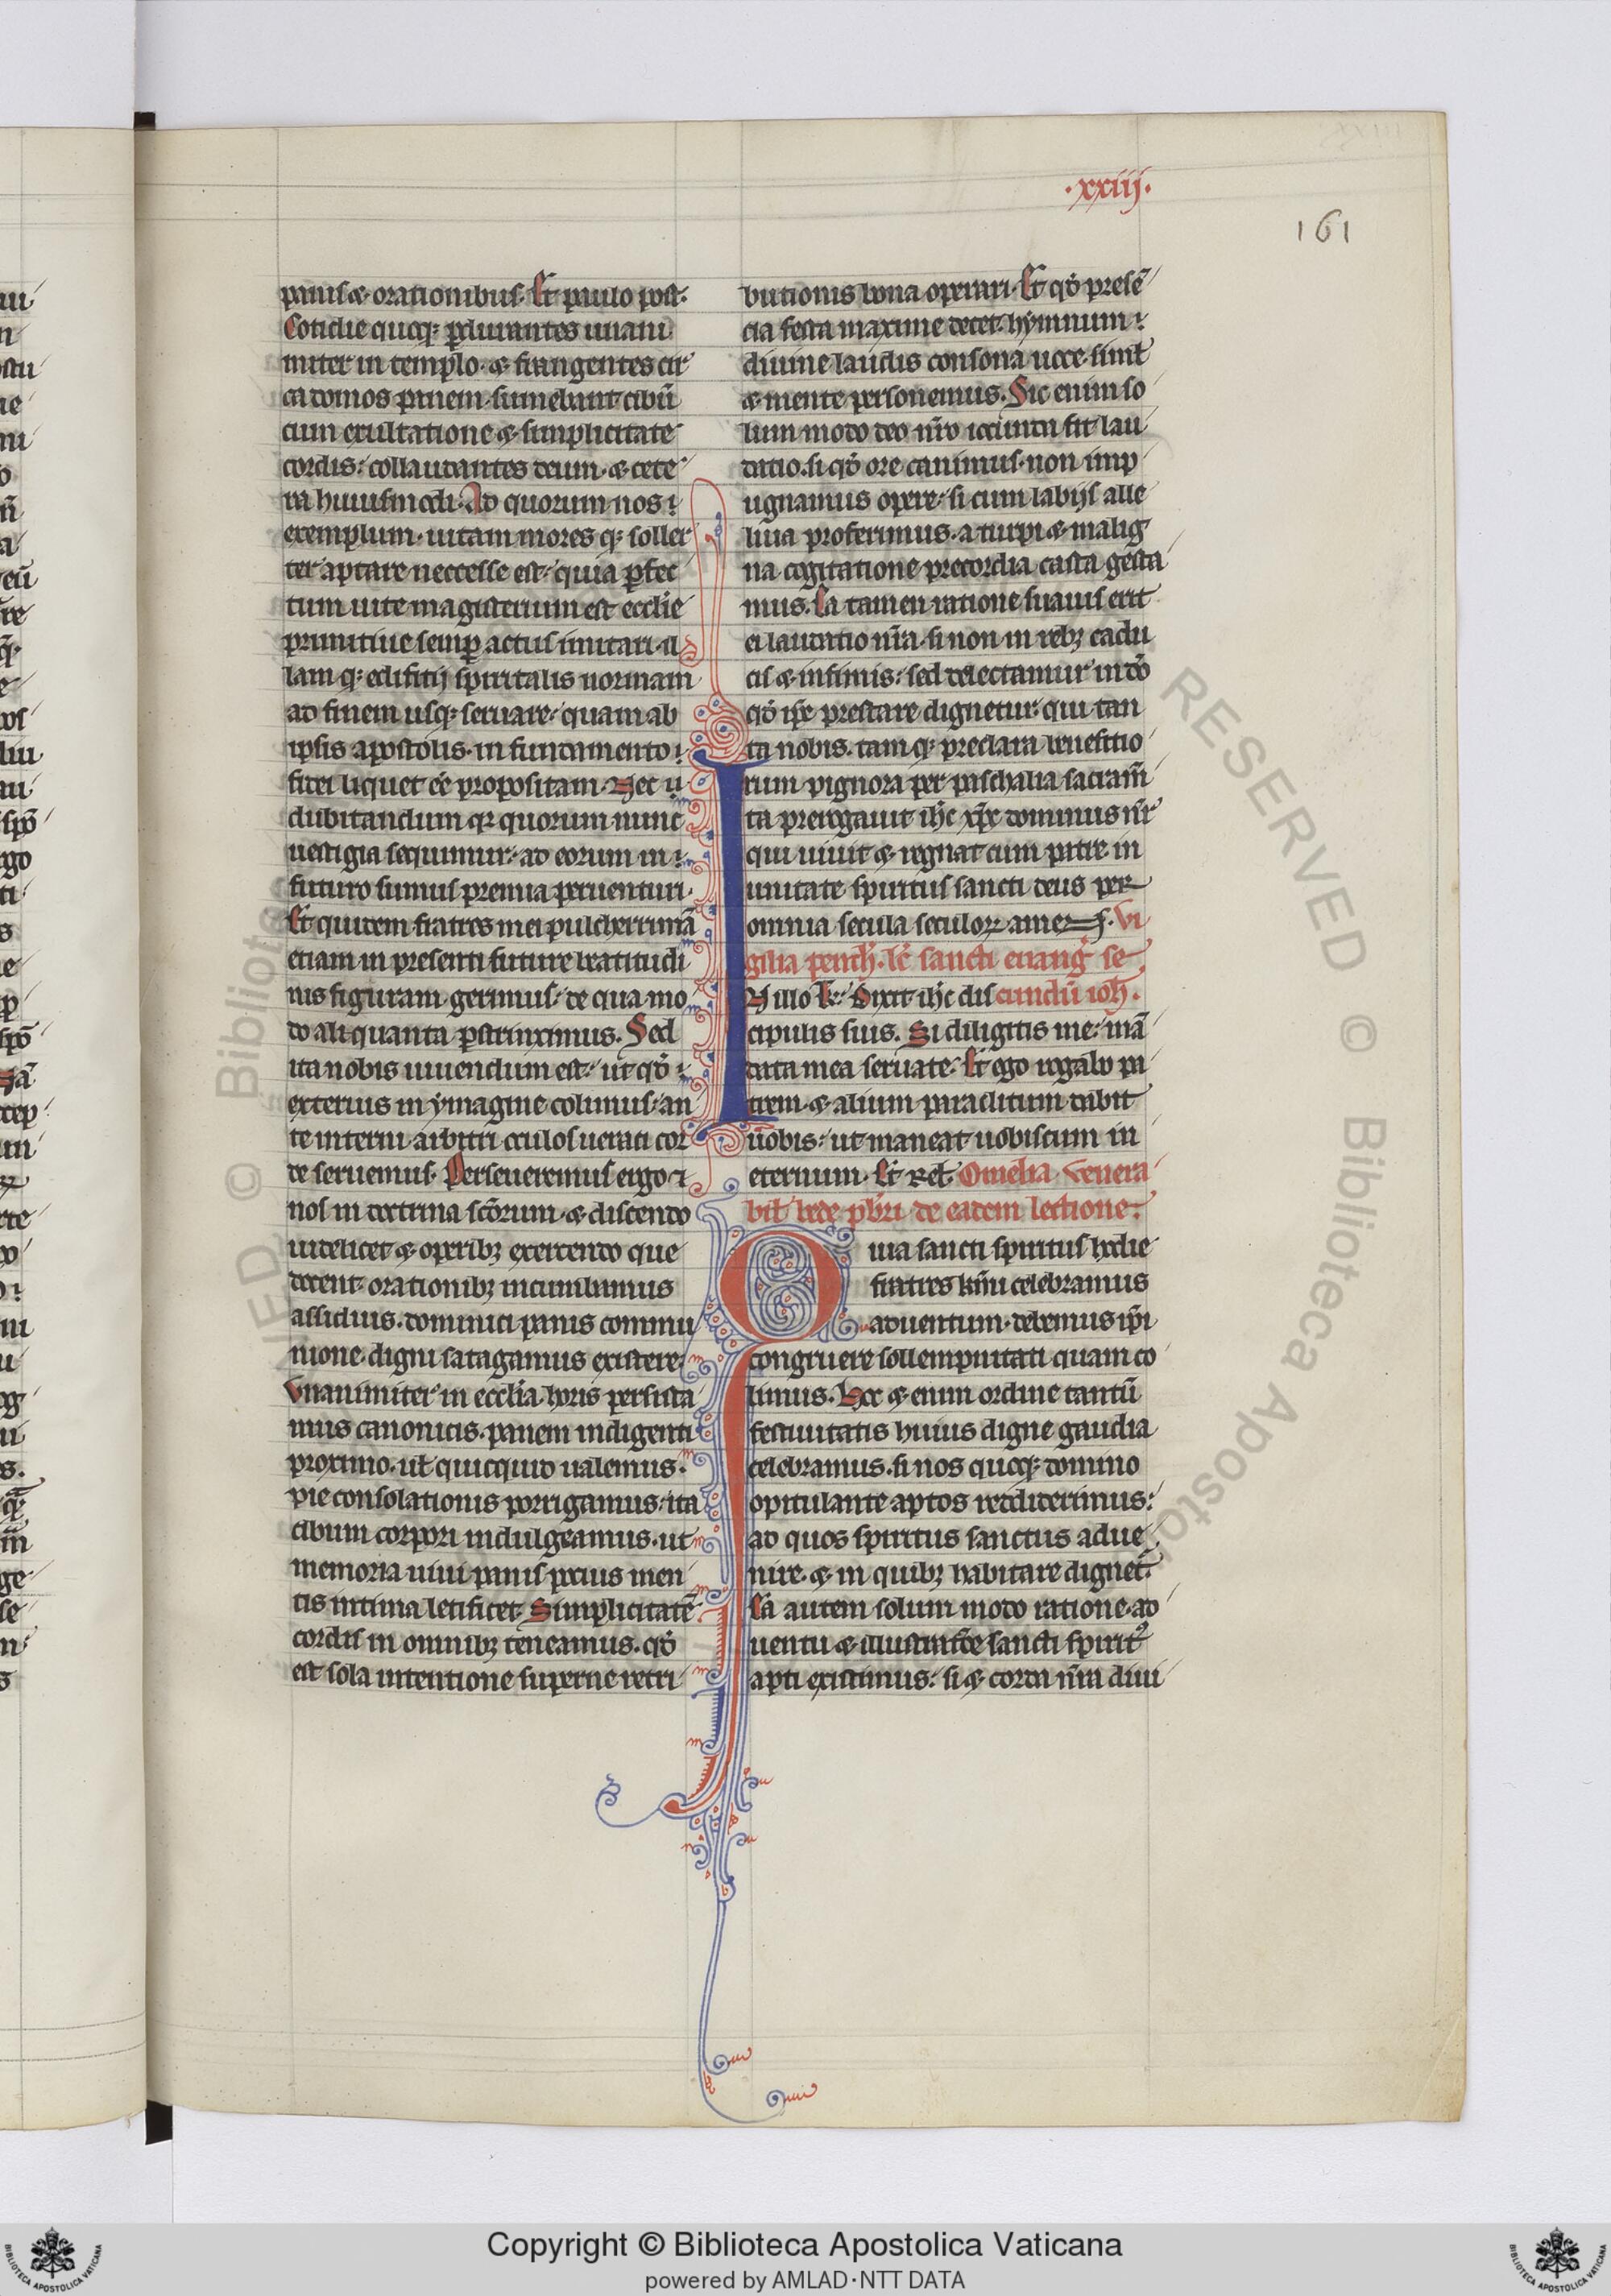 .xxiij.
161
panis & orationibus. Et paulo post.
Cotidie quoq; pdurantes unani
miter in templo. & frangentes cir
ca domos panem. sumebant cibū
cum exultatione & simplicitate
cordis: collaudantes deum. & cete
ra huiusmodi. Ad quorum nos
exemplum. uitam mores q; soller
ter aptare neccesse est: quia pfec
tum uite magisterium est ecclie
primitiue semp actus imitari. il
lam q; edifitij spiritalis normam
ad finem usq; seruare. quam ab
ipsis apostolis. in fundamento
fidei liquet eē propositam. Nec
dubitandum qr quorum nunc
uestigia sequimur: ad eorum in
futuro sumus premia peruenturi.
Et quidem fratres mei pulcherrimā
etiam in presenti future beatitudi
nis figuram gerimus: de qua mo
do aliquanta pstrinximus. Sed
ita nobis uiuendum est: ut qđ
exterius in ymagine colimus: an
te interni arbitri oculos ueraci cor
de seruemus. Perseueremus ergo &
nos in doctrina scōrum. & discendo
uidelicet & operibz exercendo que
docent. orationibz incumbamus
assiduis. dominici panis commu
nione. digni satagamus existere.
Vnanimiter in ecclia. horis persista
mus canonicis. panem indigenti
proximo. ut quicquid ualemus.
pie consolationis porrigamus: ita
cibum corpori indulgeamus. ut
memoria uiui panis pocius men
tis intima letificet. Simplicitatē
cordis in omnibz teneamus. qđ
est sola intentione superne retri
butionis bona operari. Et qđ presē
cia festa maxime decet. hymnum
diuine laudis consona uoce. simł
& mente personemus. Sic enim so
lum modo deo nr̄o iocunda fit lau
datio. si qđ ore canimus. non imp
ugnamus opere: si cum labijs alle
luia proferimus. a turpi & malig
na cogitatione precordia casta gesta
mus. Ea tamen ratione suauis erit
ei laudatio nr̄a. si non in rebz cadu
cis & infimis: sed delectamur in eo
qđ ipse prestare dignetur. qui tan
ta nobis. tam q; preclara benefitio
rum pignora per paschalia sacram̄
ta prerogauit ihc xp̄c dominus nr̄
qui uiuit & regnat cum patre in
unitate spiritus sancti deus per
omnia secula seculoꝝ amen. Vi
gilia pentħ. lc̄ sancti euang̅ se
In illo t̄: Dixit ihc dis cundū ioħ.
cipulis suis. Si diligitis me: mā
data mea seruate. Et ego rogabo pa
trem. & alium paraclitum dabit
uobis: ut maneat uobiscum in
eternum. Et Rel̄. Omelia Venera
bil̄ bede pbri de eadem lectione.
Quia sancti spiritus hodie
fratres km̄i celebramus
aduentum. debemus ip̄i
congruere sollempnitati quam co
limus. Hoc & enim ordine tantū
festiuitatis huius digne gaudia
celebramus. si nos quoq; domino
opitulante aptos reddiderimus:
ad quos spiritus sanctus adue
nire. & in quibz habitare dignet̄.
Ea autem solum modo ratione. ad
uentu & illustratiōe sancti spirit᷒
apti existimus: si & corda nr̄a diui
Copyright © Biblioteca Apostolica Vaticana
powered by AMLAD·NTT DATA